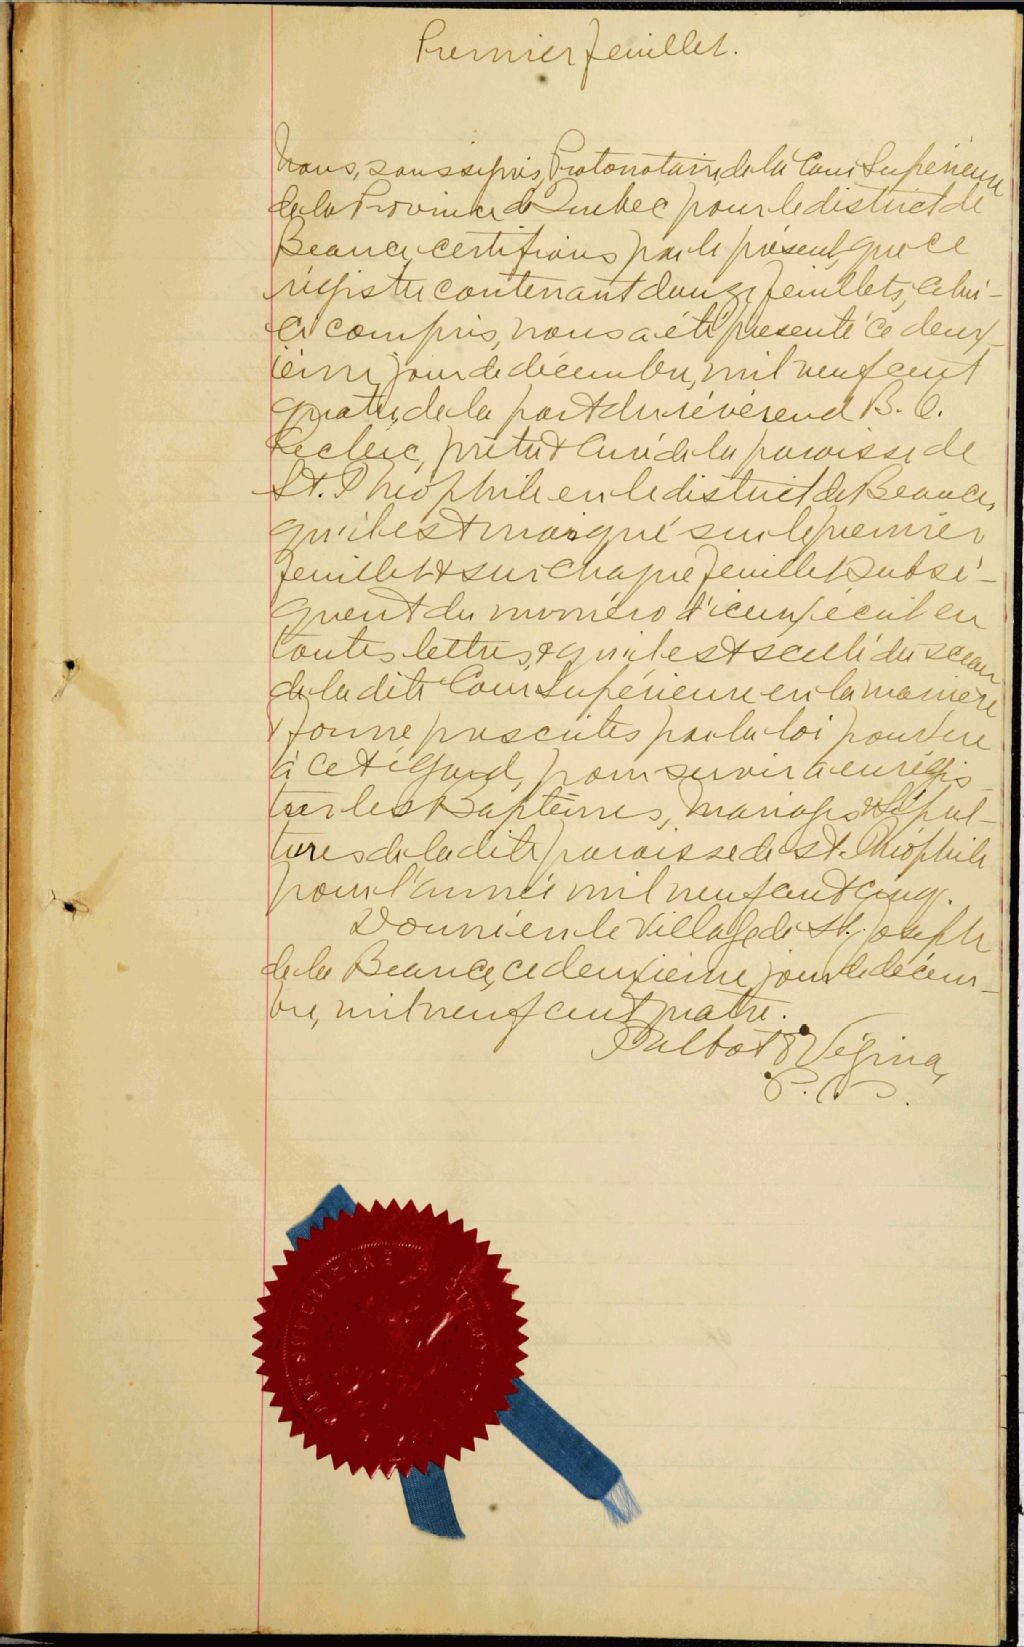 Premier feuillet.
Nous, soussignés, Protonotaire de la Cour Supérieure
de la Province de Quebec pour le district de
Beauce, certifions par le présent, que ce
régistre contenant douze feuillets, celui-
ci compris, nous a été présenté ce deux-
ième jour de décembre, mil neuf cent
quatre, de la part du révérend B. C.
Leclerc, prêtre & Curé de la paroisse de
St. Théophile en le district de Beauce,
qu'il est marqué sur le premier
feuillet & sur chaque feuillet subsé-
quent du numéro d'iceux écrit en
toutes lettres, & qu'il est scellé du sceau
de la dite Cour Supérieure en la manière
& forme prescrites par la loi pourvue
à cet égard, pour servir à enrégis-
trer les Baptêmes, Mariages & Sépul-
tures de la dite paroisse de St. Théophile
pour l'année mil neuf cent cinq.
Donné en le Village de St. Joseph
de la Beauce, ce deuxième jour de décem-
bre, mil neuf cent quatre.
Talbot & Vézina,
P. C. S.
SUPERIEURE